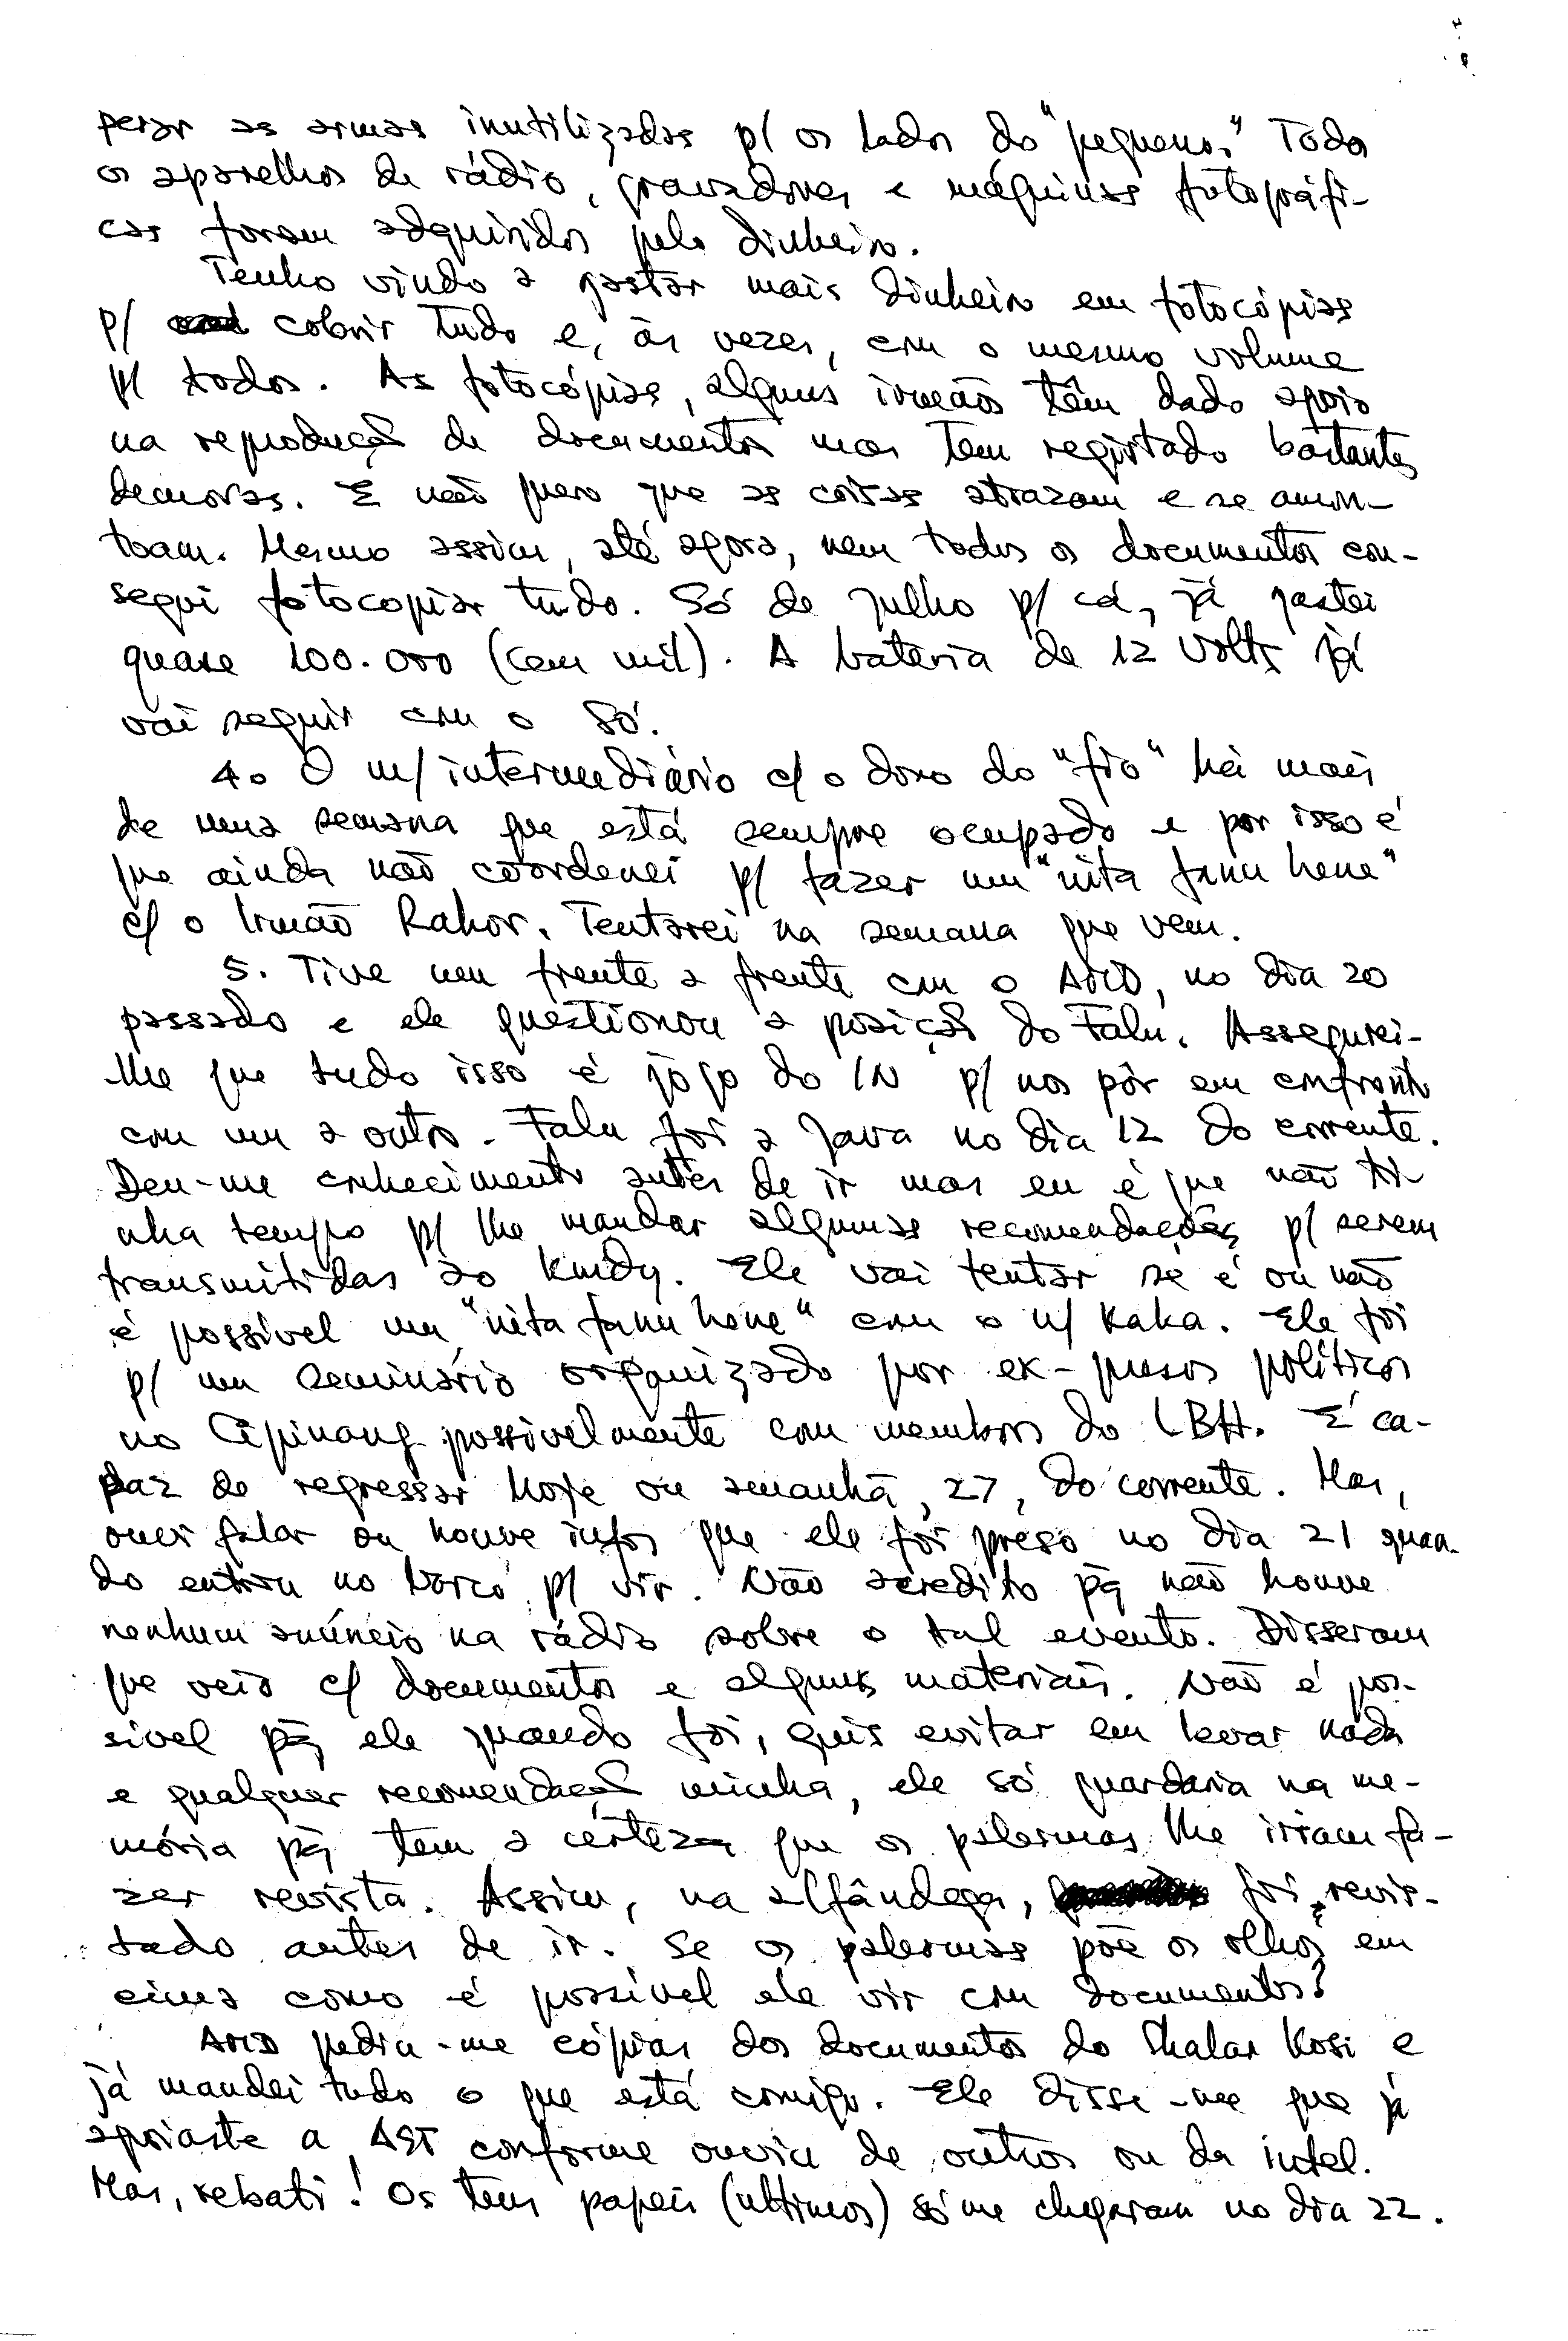 perar as armas inutilizadas p/ os lados do "pequeno." Todos
os aparelhos de rádio, gravadores e máquinas fotográfi-
cas foram adquiridos pelo dinheiro.
Tenho vindo a gastar mais dinheiro em fotocópias
p/ cobrir tudo e, às vezes, com o mesmo volume
p/ todos. As fotocópias, alguns irmãos têm dado apoio
na reprodução de documentos mas tem registado bastantes
demoras. E não quero que as coisas atrazam e se amon-
toam. Mesmo assim, até agora, nem todos os documentos con-
segui fotocopiar tudo. Só de Julho p/ cá, já gastei
quase 100.000 (cem mil). A bateria de 12 Volts já
vai seguir com o Só.
4. O m/ intermediário c/ o dono do "fio" há mais
de uma semana que está sempre ocupado e por isso é
que ainda não coordenei p/ fazer um "nita funu hene"
c/ o Irmão Rahor. Tentarei na semana que vem.
5. Tive um frente a frente com o AMD, no dia 20
passado e ele questionou a posição do Falu. Assegurei-
lhe que tudo isso é jogo do IN p/ nos pôr em confronto
com um a outro. Falu foi a Java no dia 12 do corrente.
Deu-me conhecimento antes de ir mas eu é que não ti-
nha tempo p/ lhe mandar algumas recomendações p/ serem
transmitidas ao Kmdy. Ele vai tentar se é ou não
é possível um "nita funu hene" com o n/ Kaka. Ele foi
p/ um seminário organizado por ex-presos políticos
no Cipinang possivelmente com membros do LBH. É ca-
paz de regressar hoje ou amanhã, 27, do corrente. Mas,
ouvi falar ou houve infos que ele foi preso no dia 21 quan-
do entrou no barco p/ vir. Não acredito pq não houve
nenhum anúncio na rádio sobre o tal evento. Disseram
que veio c/ documentos e alguns materiais. Não é pos-
sível pq ele quando foi, quis evitar em levar nada
e qualquer recomendação minha, ele só guardaria na me-
mória pq tem a certeza que os palermas lhe iriam fa-
zer revista. Assim, na alfândega, foi revis-
tado antes de ir. Se os palermas põe os olhos em
cima como é possível ele vir com documentos?
AMD pediu-me cópias dos documentos do Shalar Kosi e
já mandei tudo o que está comigo. Ele disse-me que já
apoiaste a AST conforme ouviu de outros ou da intel.
Mas, rebati! Os teus papéis (ultimos) só me chegaram no dia 22.